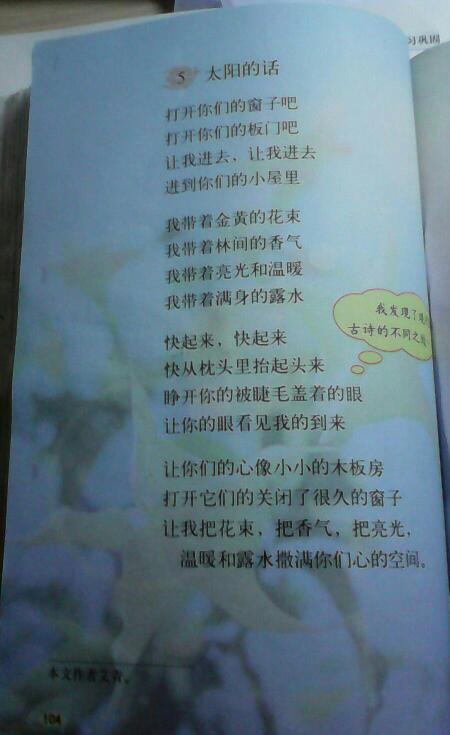 习巩固
5 太阳的话
打开你们的窗子吧
打开你们的板门吧
让我进去，让我进去
进到你们的小屋里
我带着金黄的花束
我带着林间的香气
我带着亮光和温暖
我带着满身的露水
快起来，快起来
快从枕头里抬起头来
睁开你的被睫毛盖着的眼
让你的眼看见我的到来
我发现了现
古诗的不同之
让你们的心像小小的木板房
打开它们的关闭了很久的窗子
让我把花束，把香气，把亮光，
温暖和露水撒满你们心的空间。
本文作者艾青。
104